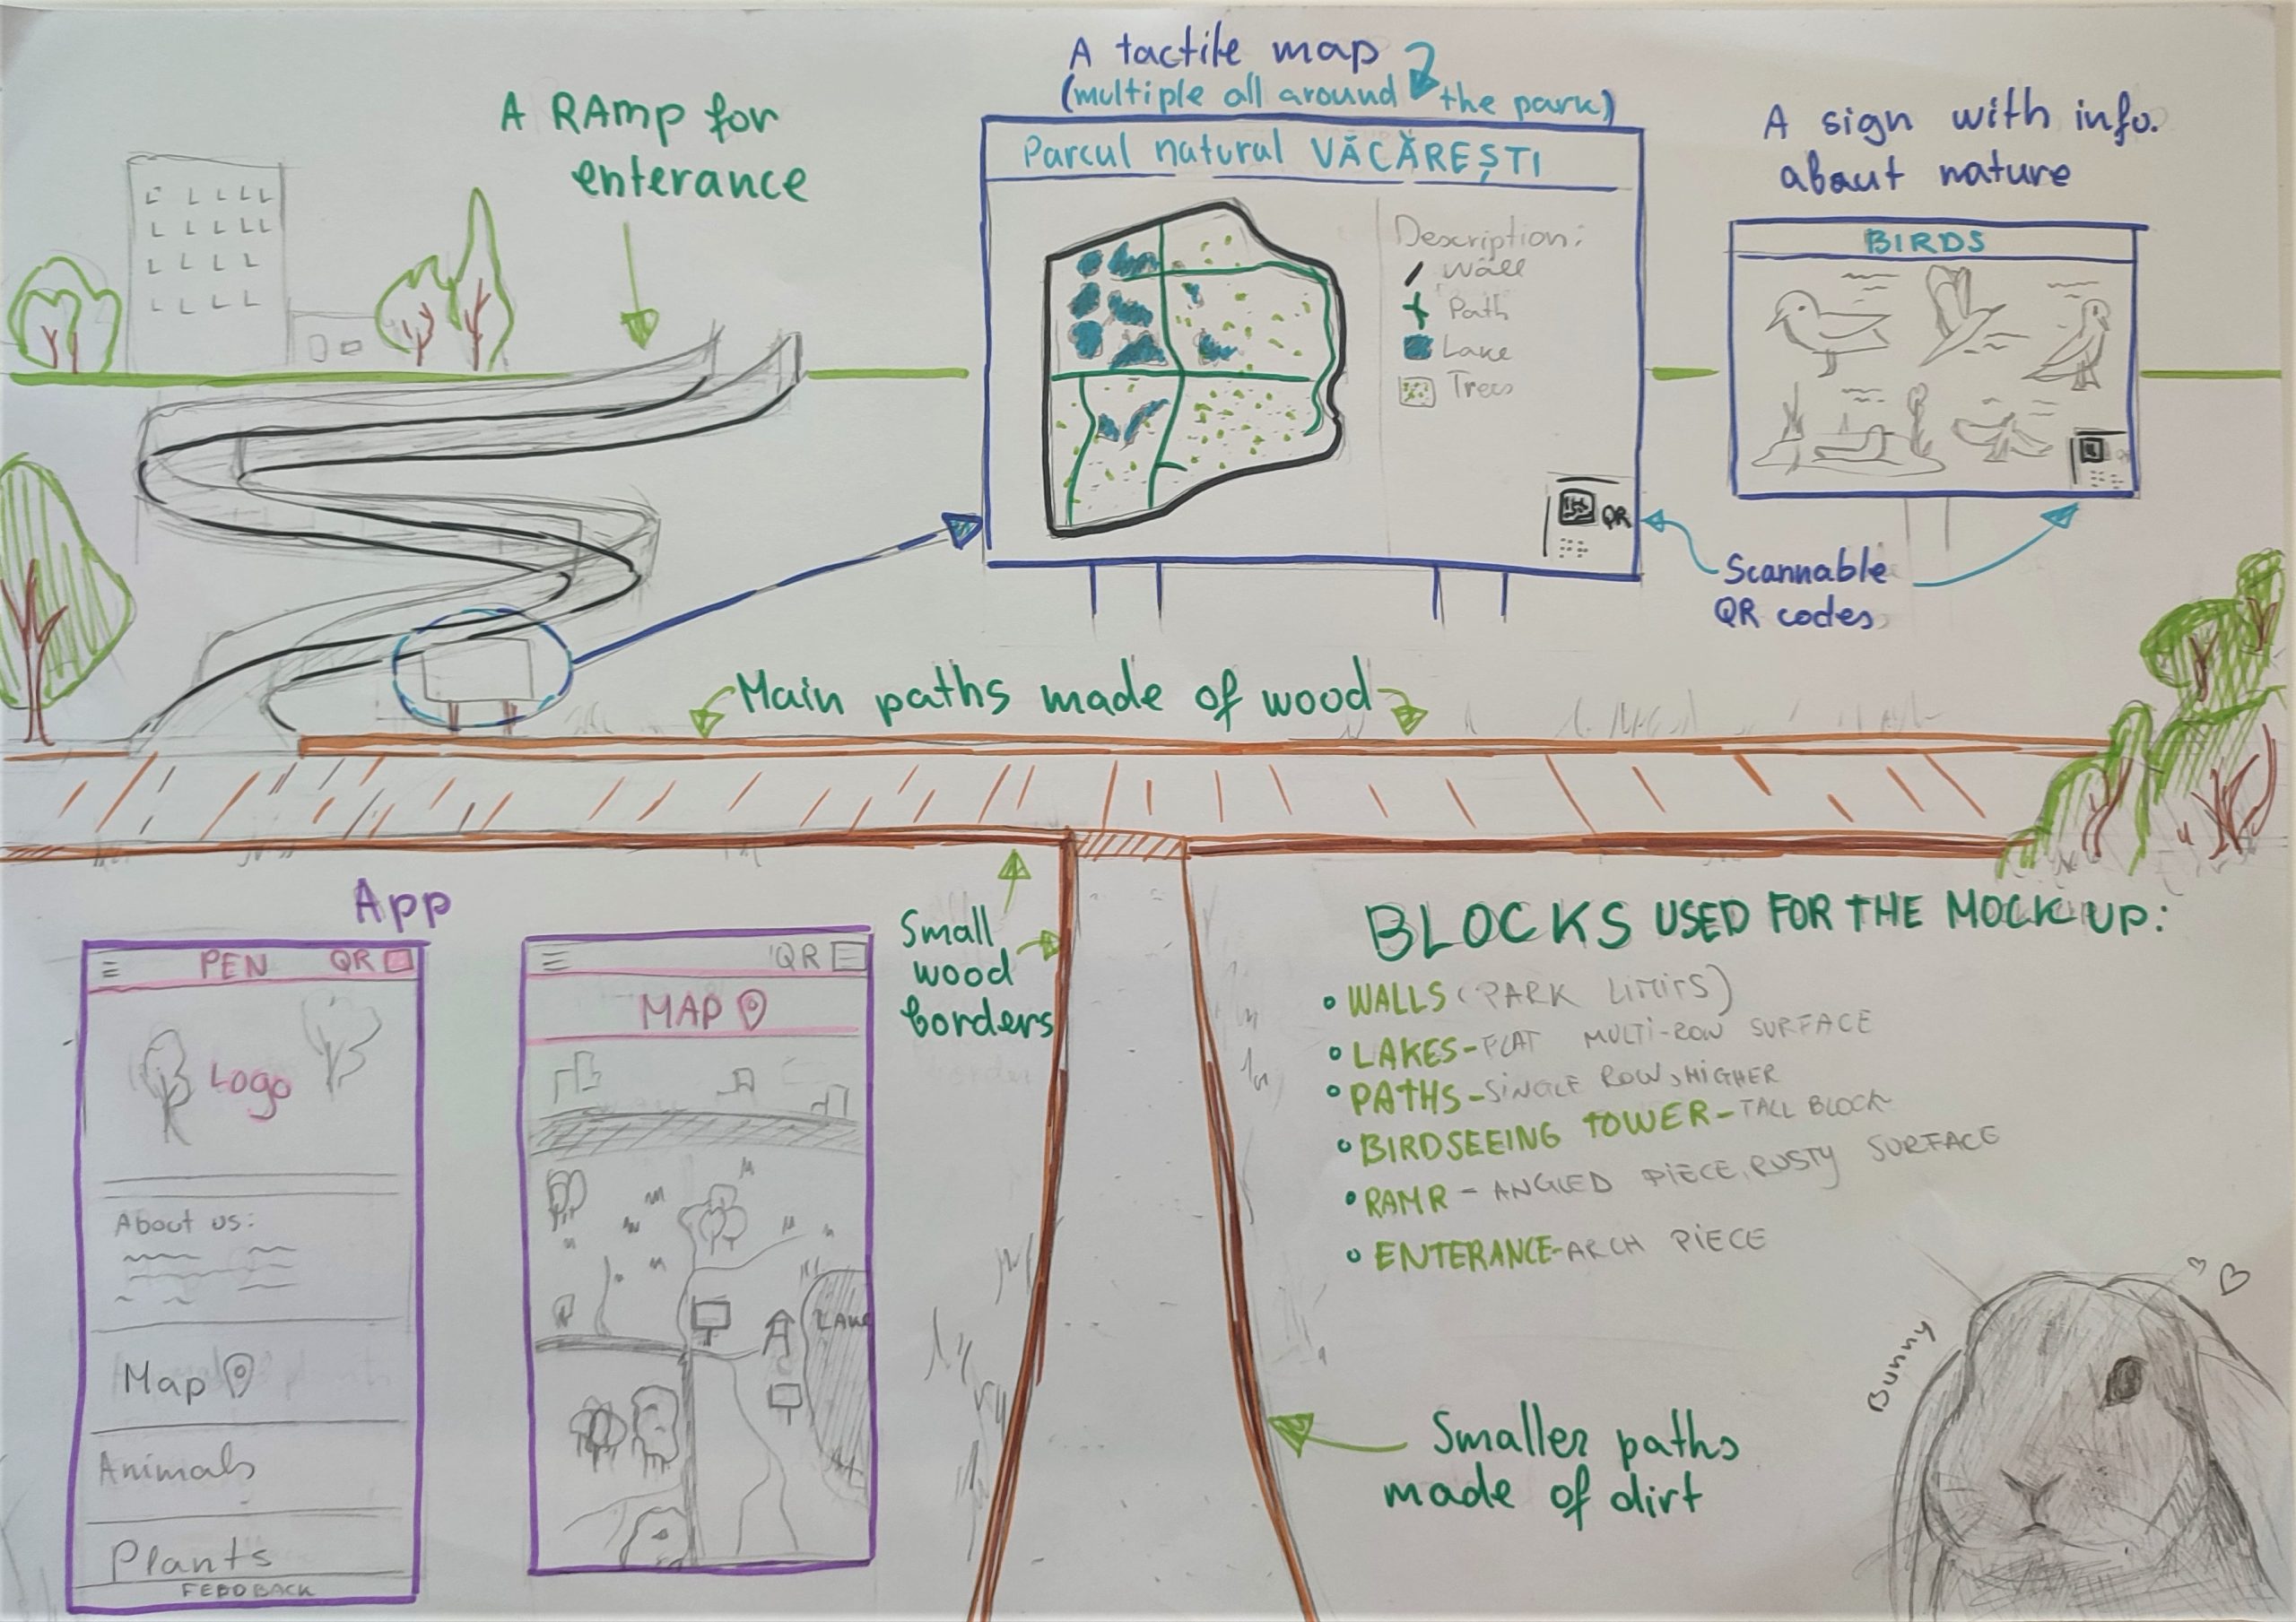 A RAMP for
enterance
A tactile map
(multiple all around the park)
Parcul natural VĂCĂREȘTI
Description:
Wall
Path
Lake
Trees
QR
A sign with info.
about nature
BIRDS
Scannable
QR codes
Main paths made of wood
App
PEN QR
Logo
About us:
Map
Animals
Plants
FEEDBACK
QR
MAP
Lake
Small
wood
borders
BLOCKS USED FOR THE MOCK UP:
• WALLS (PARK LIMITS)
• LAKES-FLAT MULTI-ROW SURFACE
• PATHS-SINGLE ROW, HIGHER
• BIRDSEEING TOWER-TALL BLOCK
• RAMR - ANGLED PIECE, RUSTY SURFACE
• ENTERANCE-ARCH PIECE
Bunny
Smaller paths
made of dirt